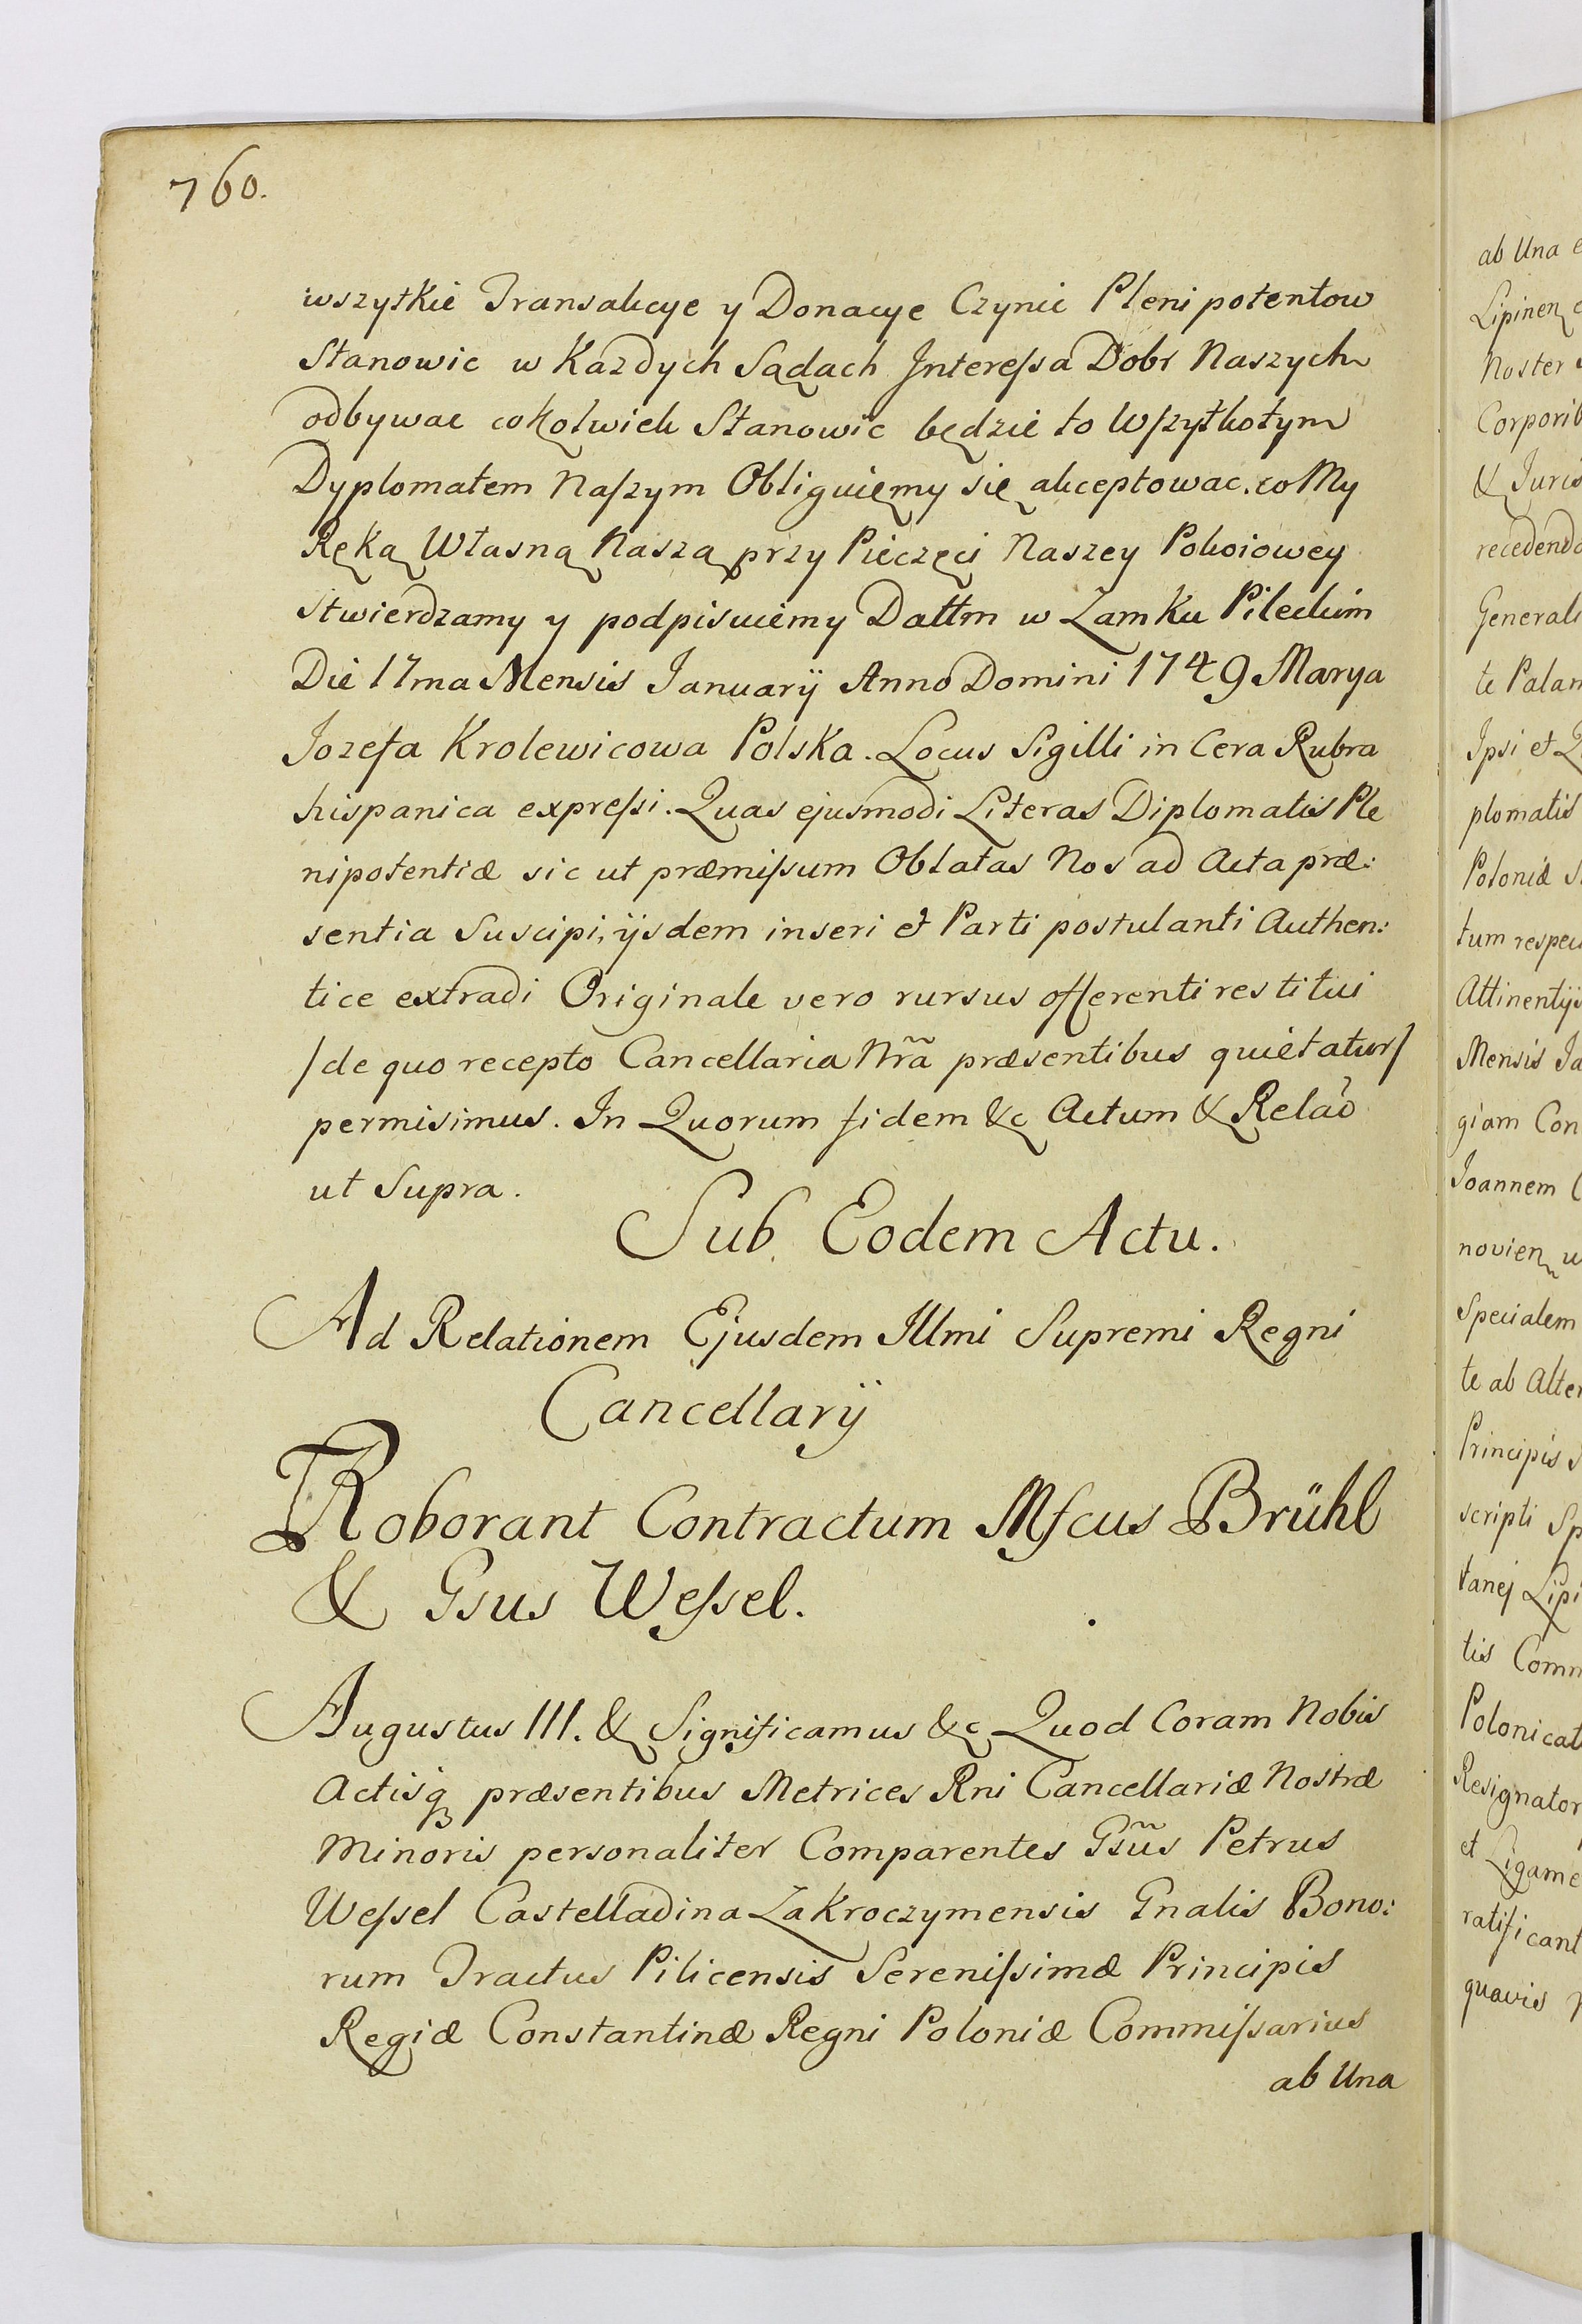 760.
wszytkie Transakcye y Donacye Czynić Plenipotentow
Stanowic w Kazdych Sądach Interessa Dobr Naszych
odbywac cokolwiek Stanowic będzie to Wszytkotym
Dyplomatem Naszym Obliguięmy się akceptowac. co My
Ręką Własną Naszą przy Pieczęci Naszey Pokoiowey
Stwierdzamy y podpisuiemy Dattm w Zamku Pileckim
Die 17ma Mensis Januarij Anno Domini 1749 Marya
Jozefa Krolewicowa Polska. Locus Sigilli in Cera Rubra
hispanica expressi. Quas ejusmodi Literas Diplomatis Ple
nipotentiæ sic ut præmissum Oblatas Nos ad Acta præ:
sentia Suscipi, ijsdem inseri et Parti postulanti Authen:
tice extradi Originale vero rursus offerenti restitui
/de quo recepto Cancellaria Nr̃ã præsentibus quietatur/
permisimus. In Quorum fidem &c Actum & Relaõ
ut Supra.
Sub Eodem Actu.
Ad Relationem Ejusdem Illmi Supremi Regni
Cancellarij
Roborant Contractum Mfcus Brühl
& Gsus Wessel.
Augustus III. & Significamus &c Quod Coram Nobis
Actisq præsentibus Metrices Rni Cancellariæ Nostræ
Minoris personaliter Comparentes Gsũs Petrus
Wessel Castelladina Zakroczymensis Gnalis Bono:
rum Tractus Pilicensis Serenissimæ Principis
Regiæ Constantinæ Regni Poloniæ Commissarius
ab Una
ab Una
Lipinen
Noster
Corporib
& Juris
recedendo
Generali
te Palam
Ipsi et
plomatis
Poloniæ
tum respec
Attinentijs
Mensis Ja
giam Con
Joannem
novien
Specialem
te ab Alter
Principis
scripti Sp
tanej Lipi
tis Comm
Polonicali
Resignator
et Ligame
ratificant
quavis